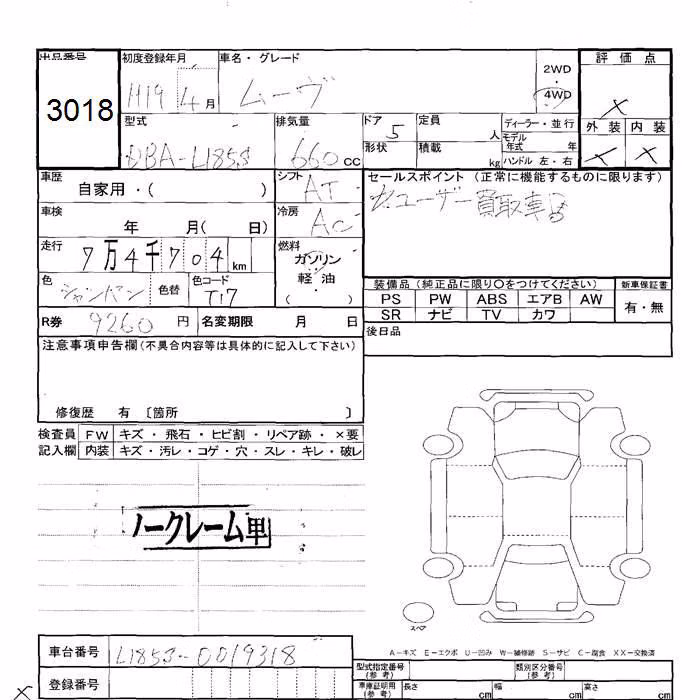 出品番号 初度登録年月 車名・グレード 評価点
3018 H19 4月 ムーヴ 2WD・4WD ×
型式 排気量 ドア 5 定員 人 ディーラー・並行 外装 内装
DBA-L185S 660cc 形状 積載 kg モデル年式 年 × ×
ハンドル 左・右
車歴 自家用・( ) シフト AT セールスポイント(正常に機能するものに限ります)
ユーザー買取車
車検 年 月( 日) 冷房 AC
走行 7万4千704km 燃料 ガソリン・軽油・( )
色 シャンパン 色替 色コード T17 装備品(純正品に限り〇をつけてください) 新車保証書
PS PW ABS エアB AW 有・無
SR ナビ TV カワ
R券 9260円 名変期限 月 日 後日品
注意事項申告欄(不具合内容等は具体的に記入して下さい)
修復歴 有〔箇所 〕
検査員 FW キズ・飛石・ヒビ割・リペア跡・×要
記入欄 内装 キズ・汚レ・コゲ・穴・スレ・キレ・破レ
ノークレーム車
スペア
A-キズ E-エクボ U-凹み W-補修跡 S-サビ C-腐食 XX-交換済
車台番号 L185S-0019318 型式指定番号(参考) 類別区分番号(参考)
× 登録番号 車庫証明用(参考) 長さ cm 幅 cm 高さ cm